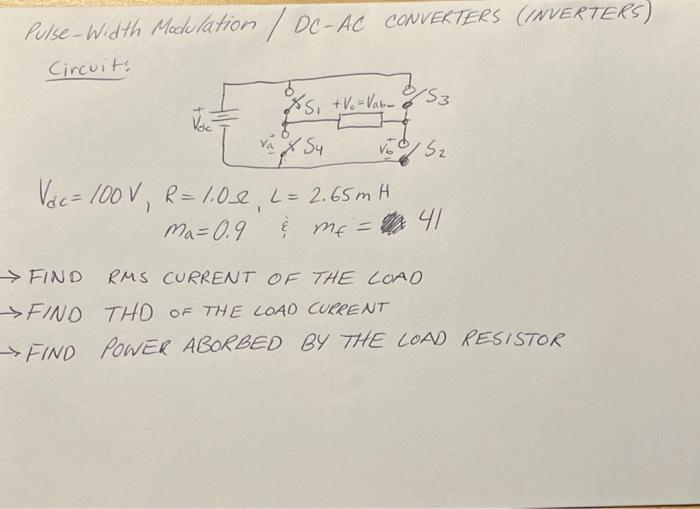 Pulse-Width Modulation / DC-AC CONVERTERS (INVERTERS)
Circuit:
S1 +Vo=Vab- S3
+ Vdc -
+ va - S4 + vb - S2
Vdc = 100 V, R = 1.0Ω, L = 2.65 mH
ma = 0.9 & mf = 41
→ FIND RMS CURRENT OF THE LOAD
→ FIND THD OF THE LOAD CURRENT
→ FIND POWER ABORBED BY THE LOAD RESISTOR